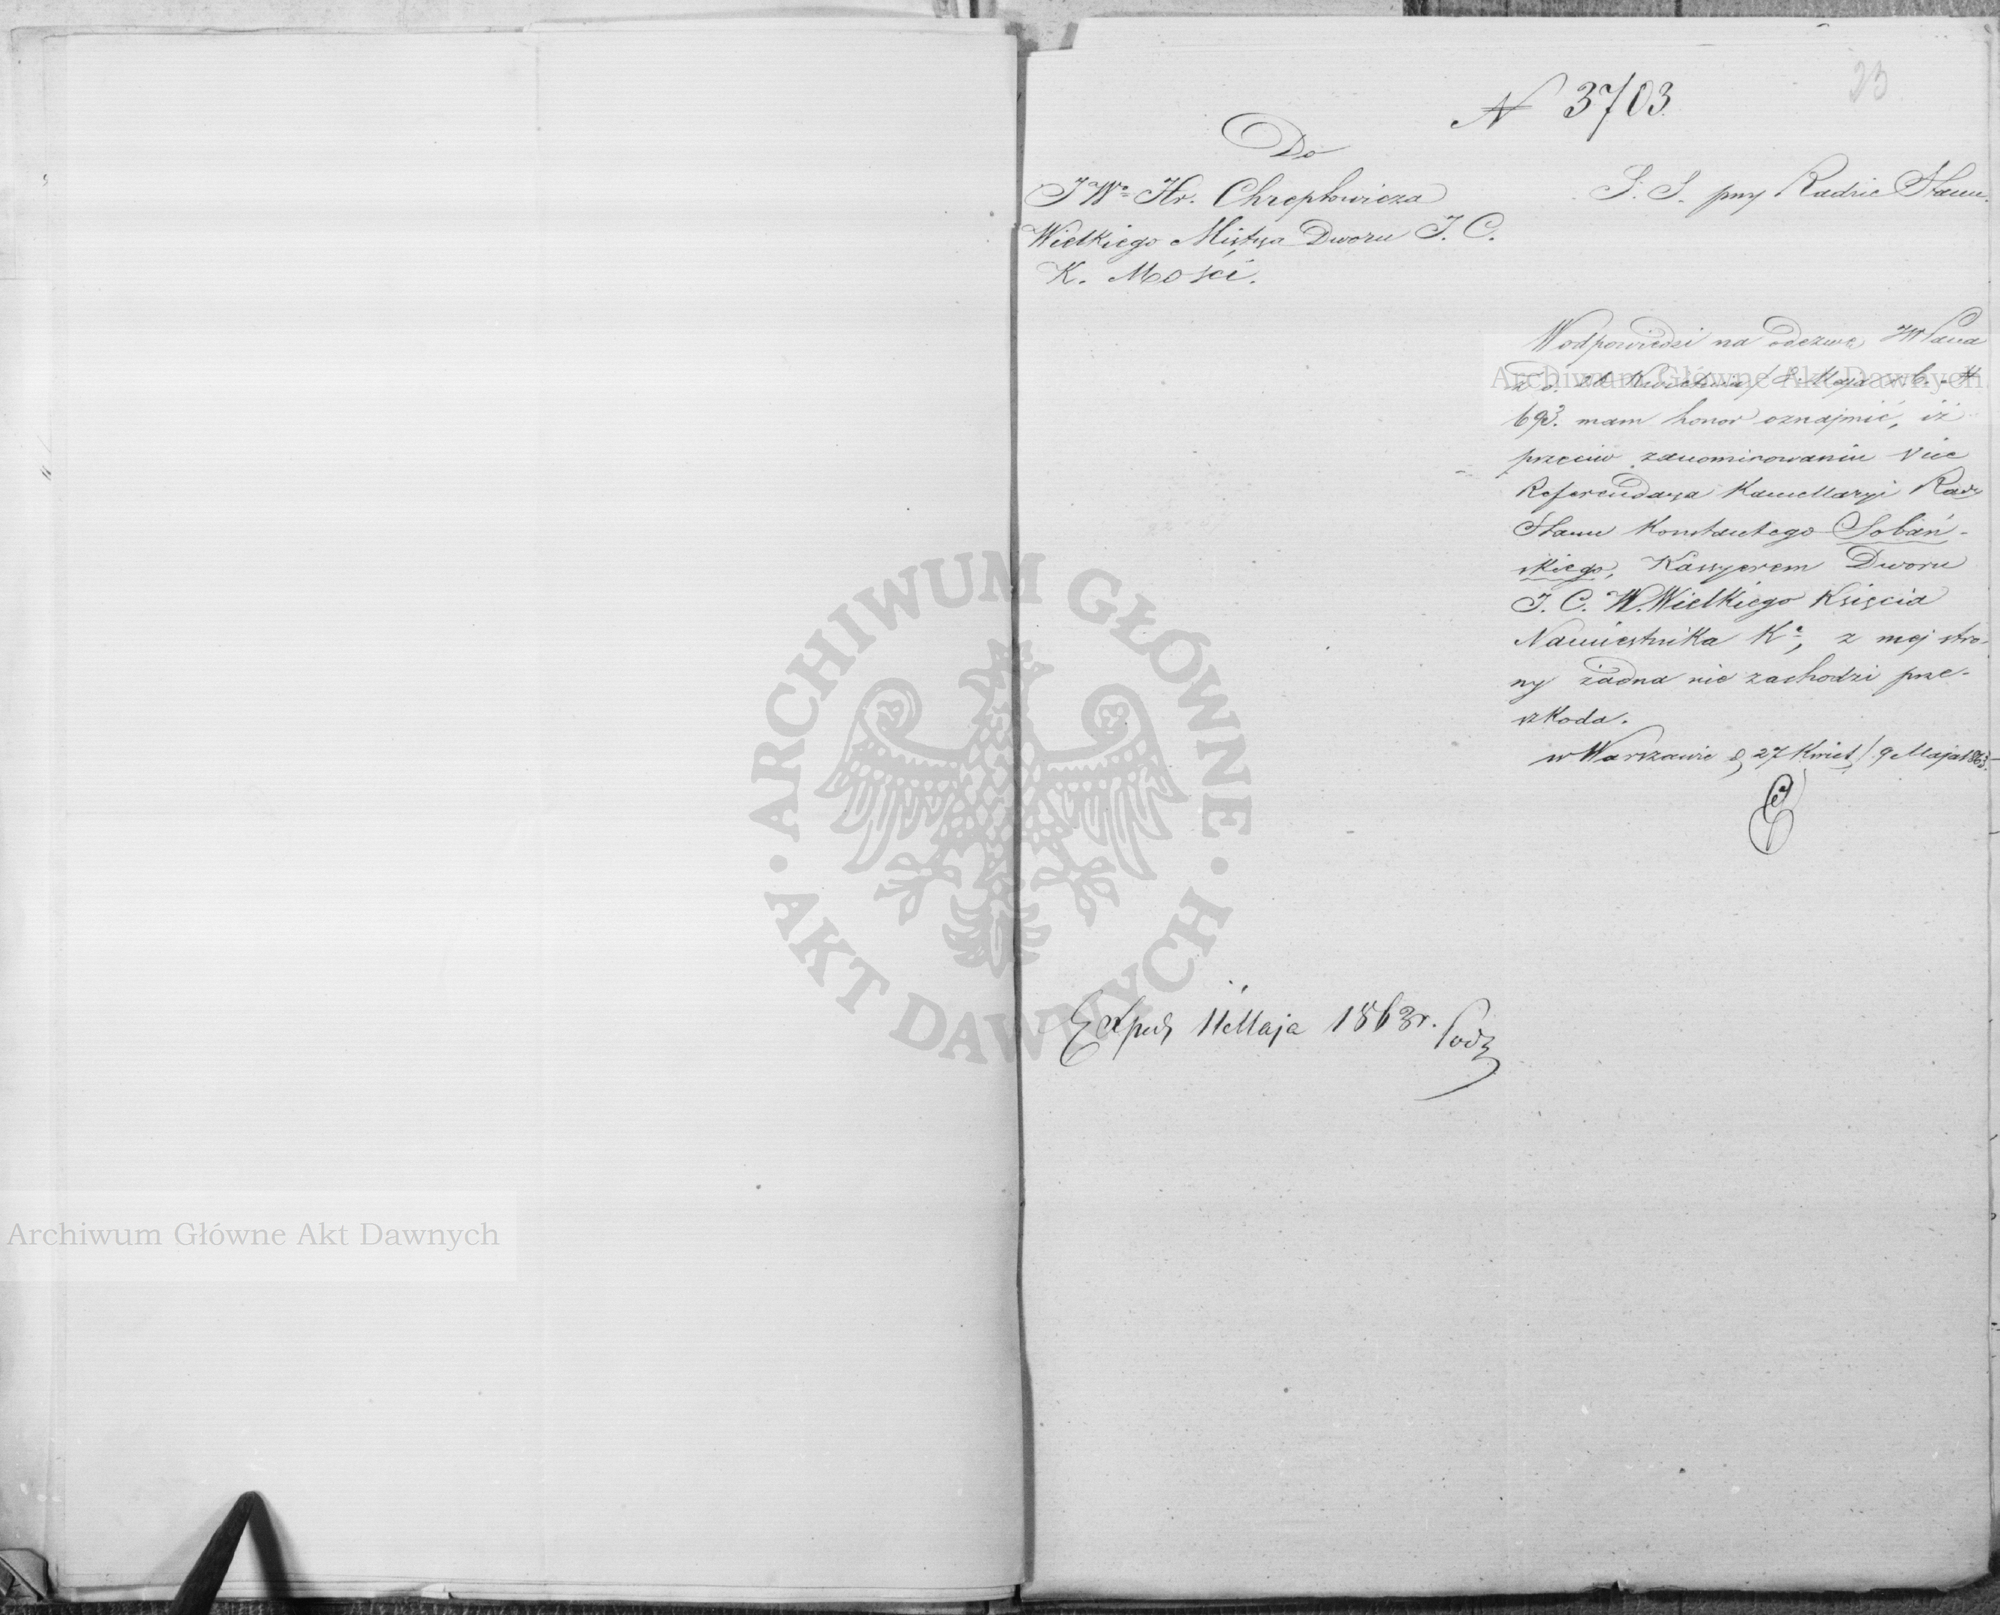 23
N 3703
Do
J W° Hr. Chreptowicza
Wielkiego Mistrza Dworu J. C.
K. Mości.
S. S. przy Radzie Stanu.
W odpowiedzi na odezwę JW Pana
z d. 26 Kwietnia / 8. Maja r. b. N
693. mam honor oznajmić, iż
przeciw zanominowaniu Vice
Referendarza Kancellaryi Rady
Stanu Konstantego Sobań-
skiego, Kassyerem Dworu
J. C. W. Wielkiego Księcia
Namiestnika K°, z mej stro-
ny żadna nie zachodzi prze-
szkoda.
w Warszawie d. 27 Kwiet / 9 Maja 1863.
Exped 11 Maja 1863 r.
ARCHIWUM GŁÓWNE · AKT DAWNYCH ·
Archiwum Główne Akt Dawnych
Archiwum Główne Akt Dawnych